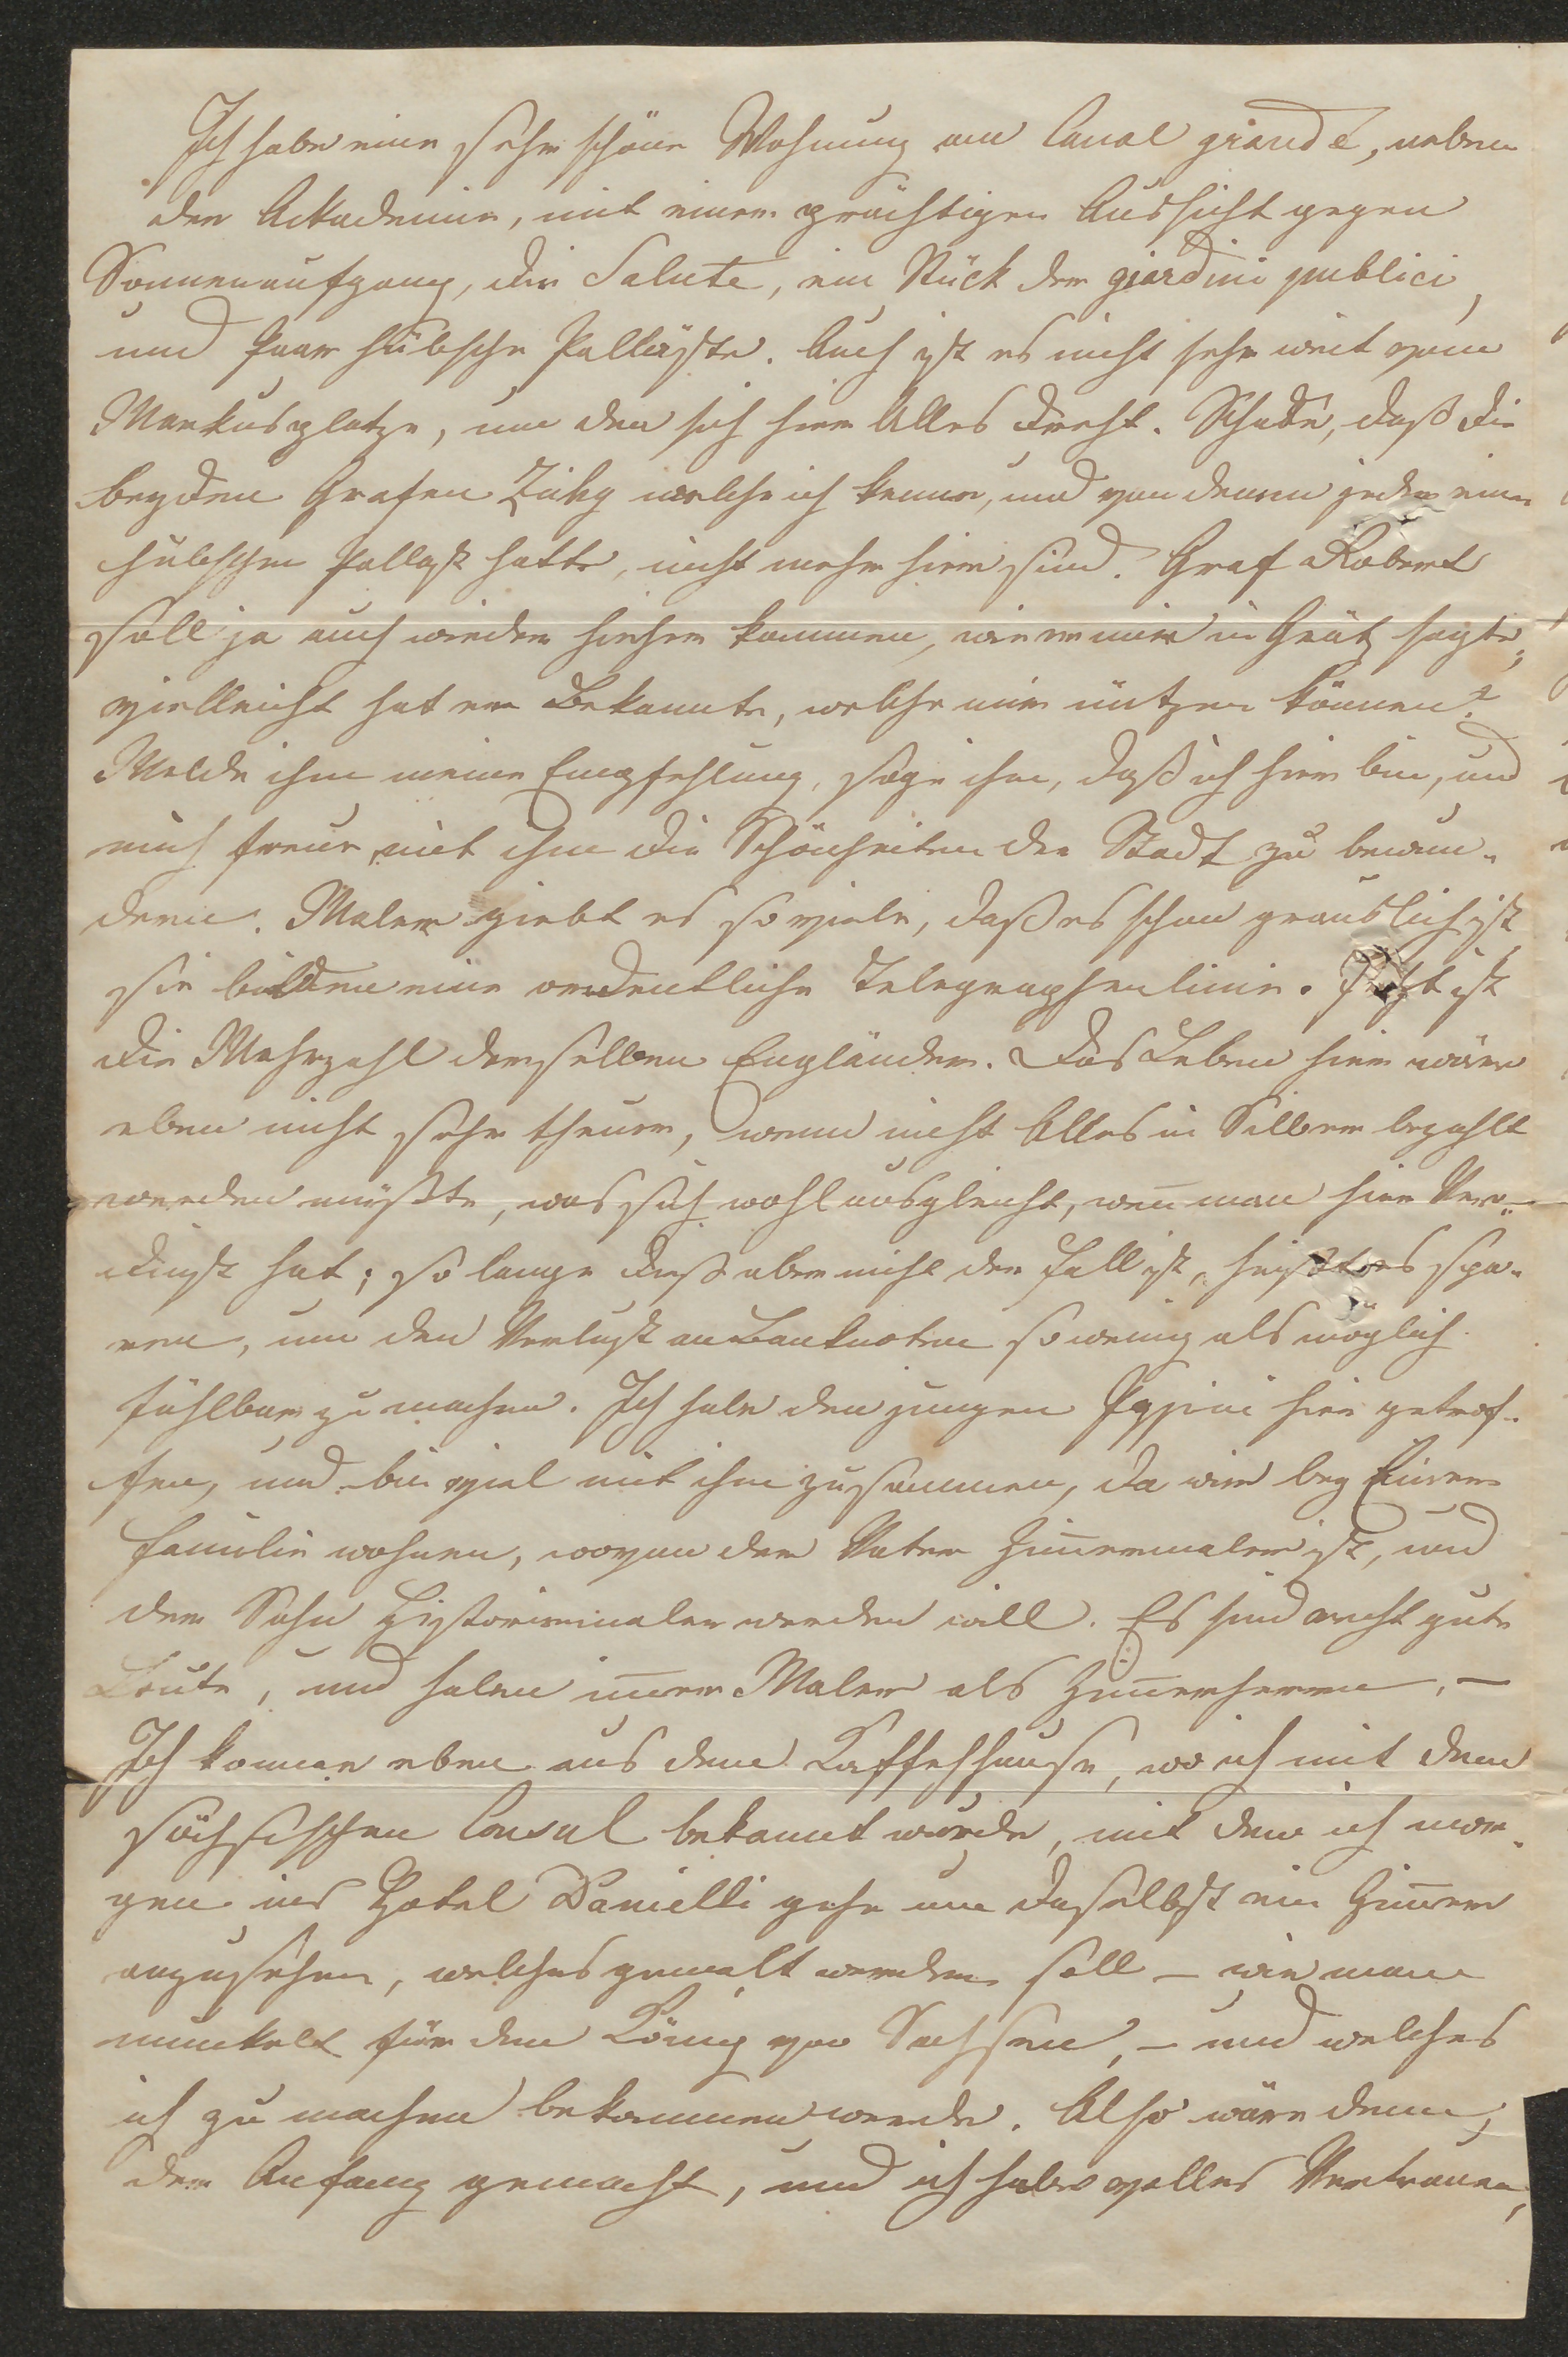 Ich habe eine sehr schöne Wohnung am Canal grande, neben
der Akademie, mit einer prächtigen Aussicht gegen
Sonnenaufgang, die Salute, ein Stück der giardini publici,
und Paar hübsche Palläste. Auch ist es nicht sehr weit vom
Markusplatze, um den sich hier Alles dreht. Schade, daß die
beyden Grafen Zichy welche ich kenne, und von denen jeder einen
hübschen Pallast hatte, nicht mehr hier sind. Graf Robert
soll ja auch wieder hieher kommen, wie er mir in Grätz sagte,
vielleicht hat er Bekannte, welche mir nützen können?
Melde ihm meine Empfehlung, sage ihm, daß ich hier bin, und
mich freue mit ihm die Schönheiten der Stadt zu bewun-
dern. Maler giebt es so viele, daß es schon grauslich ist
sie bilden eine ordentliche Telegraphenlinie. Jetzt ist
die Mehrzahl derselben Engländer. Das Leben hier wäre
eben nicht sehr theuer, wenn nicht Alles in Silber bezahlt
werden müßte, was sich wohl ausgleicht, weñ man hier Ver-
dienst hat; so lange dieß aber nicht der Fall ist, heißt es spa-
ren, um den Verlust an Banknoten so wenig als möglich
fühlbar zu machen. Ich habe den jungen hier getrof-
fen, und bin viel mit ihm zusammen, da wir bey Einer
Familie wohnen, wovon der Vater Zim̄ermaler ist, und
der Sohn Historienmaler werden will. Es sind recht gute
Leute, und haben im̄er Maler als Zim̄erherren. –
Ich komme eben aus dem Kaffehhause, wo ich mit dem
sächsischen Consul bekannt wurde, mit dem ich mor-
gen ins Hotel Danielli gehe um daselbst ein Zim̄er
anzusehen, welches gemalt werden soll – wie man
munkelt für den König von Sachsen, – und welches
ich zu machen bekommen werde. Also wäre denn
der Anfang gemacht, und ich habe volles Vertrauen,